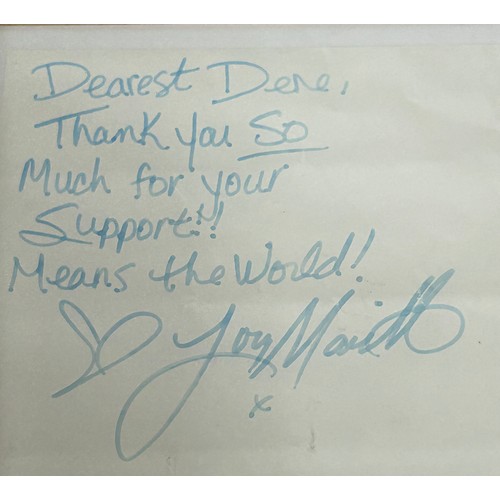 Dearest Dene,
Thank you SO
Much for your
Support!!
Means the World!
Joy
x